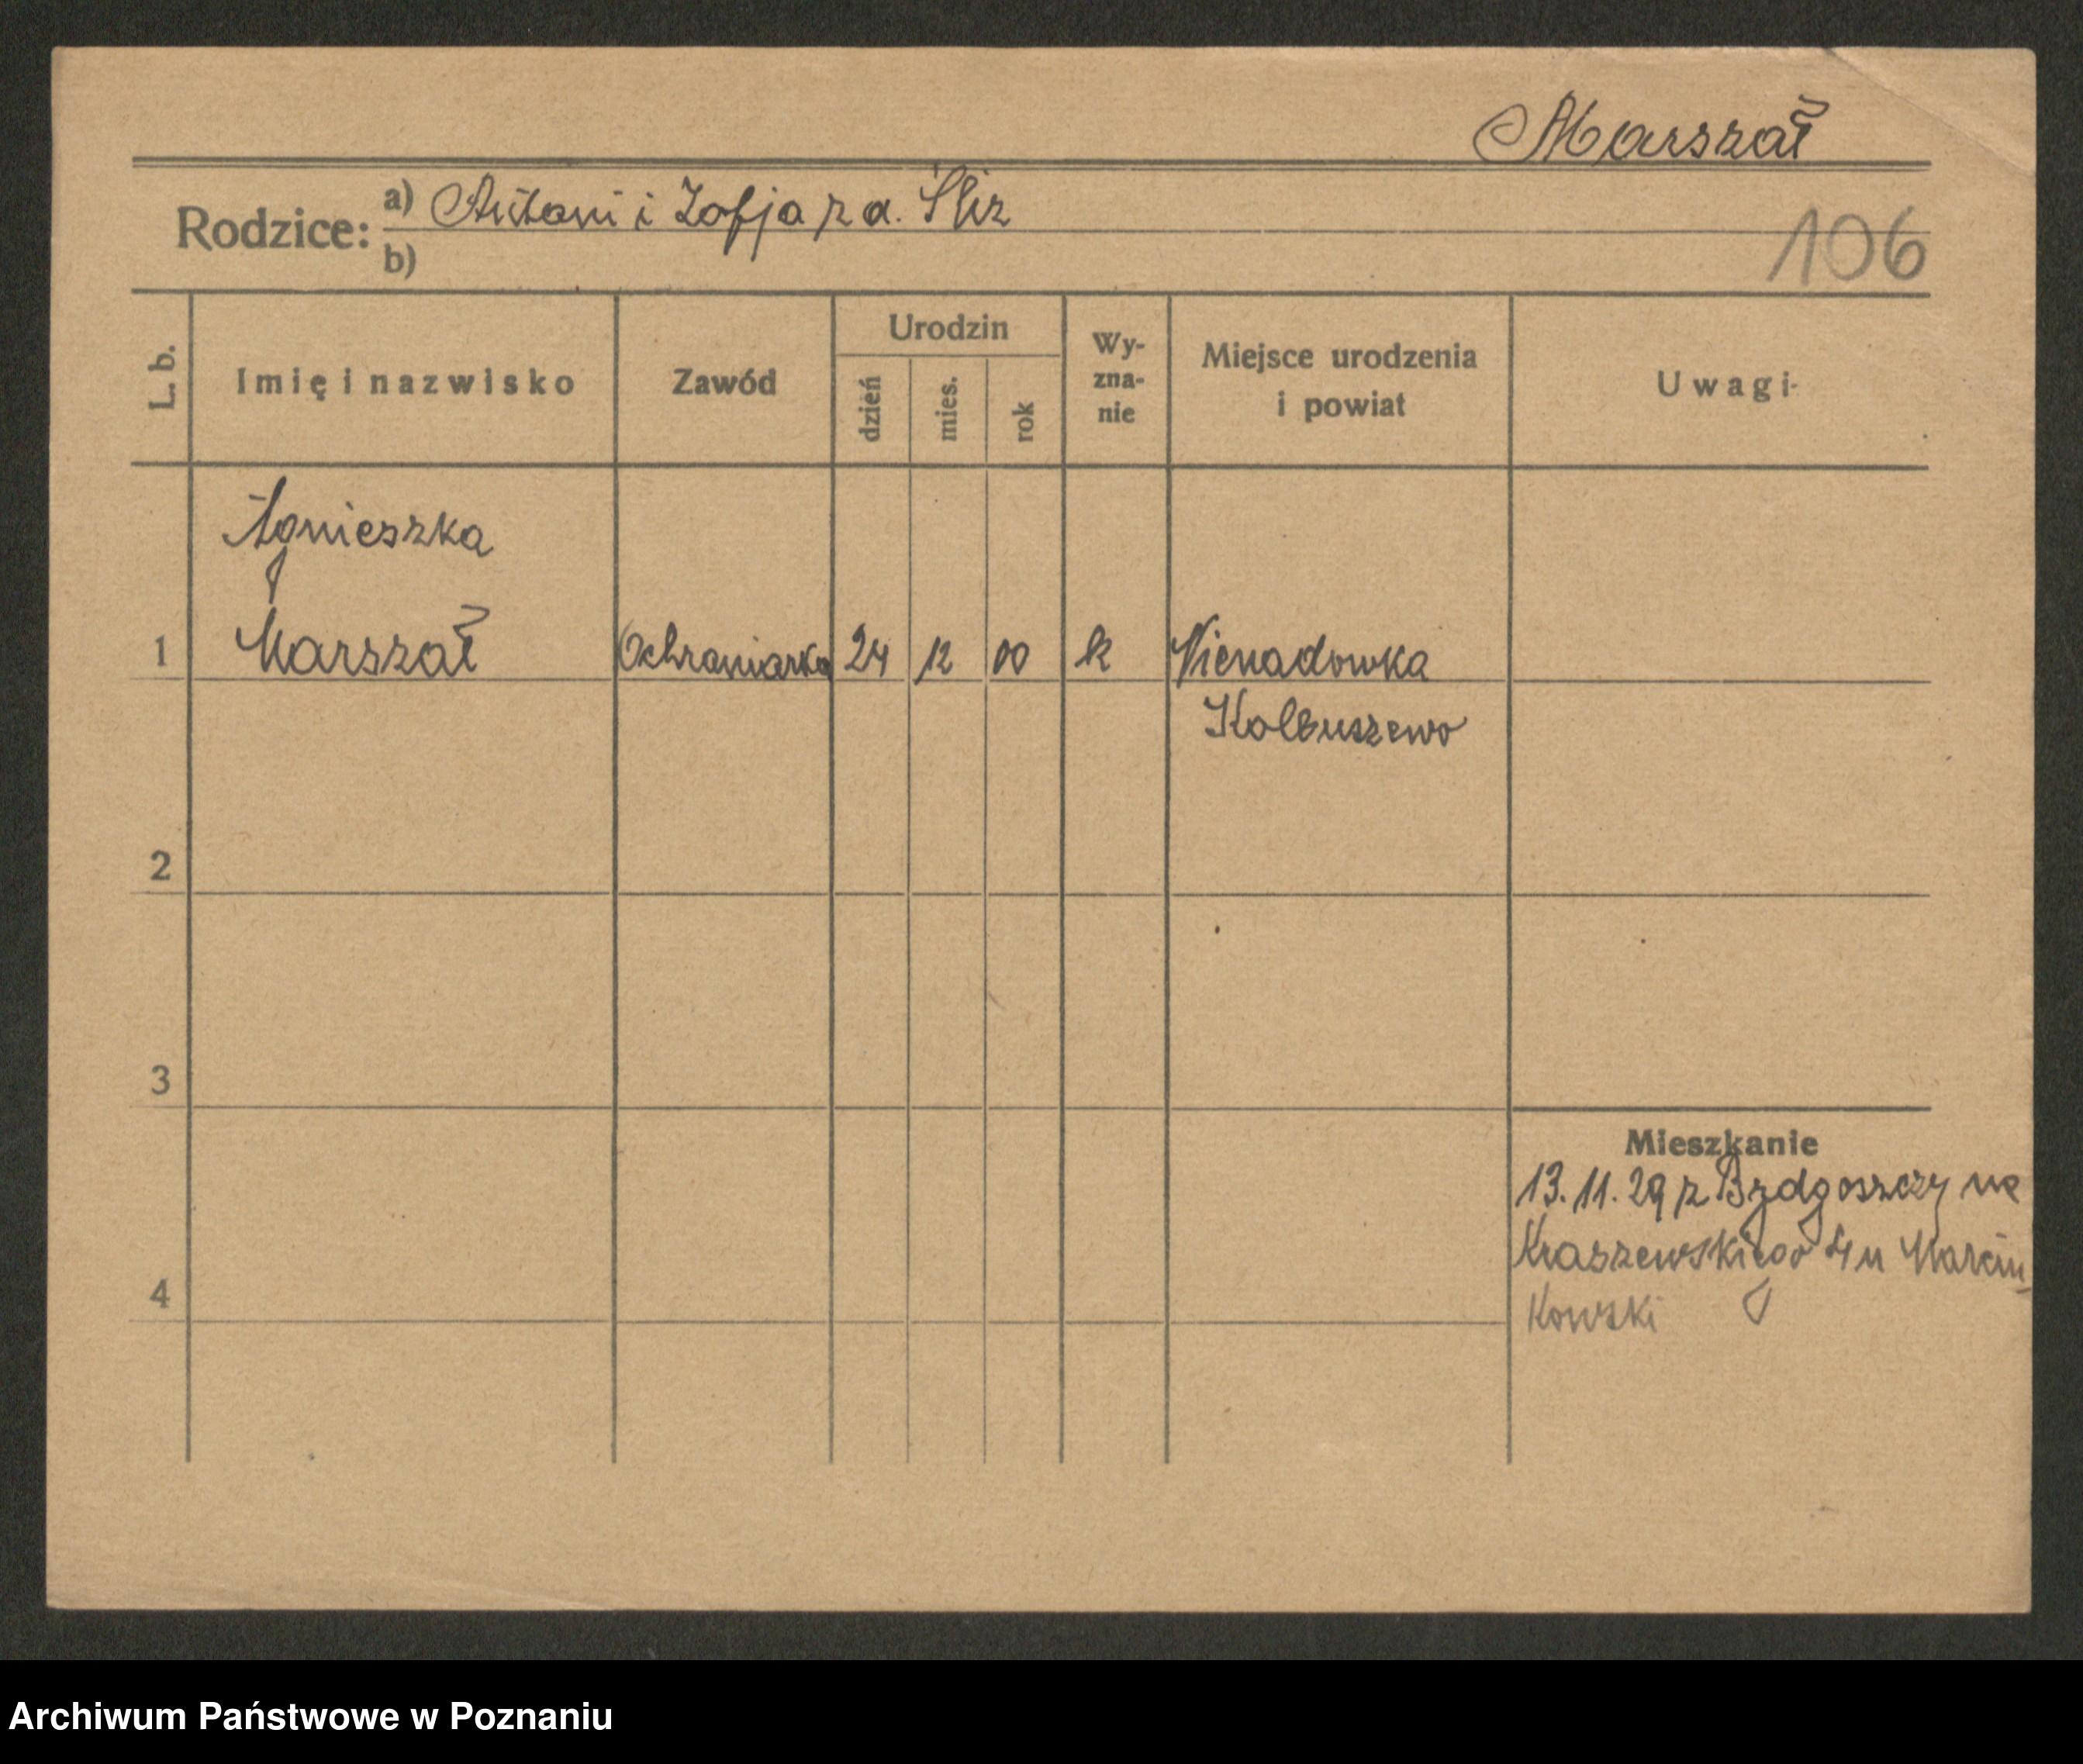 Marszał
Rodzice: a) Antoni i Zofja z d. Śliz
b)
106
L. b. Imię i nazwisko Zawód Urodzin dzień mies. rok Wy-zna-nie Miejsce urodzenia i powiat Uwagi
Agnieszka
1 Marszał Ochraniarka 24 12 00 k Nienadowka
Kolbuszewo
2
3
Mieszkanie
13. 11. 29 z Bydgoszczy na
Kraszewskiego 4 u Marcin
4 kowski
Archiwum Państwowe w Poznaniu